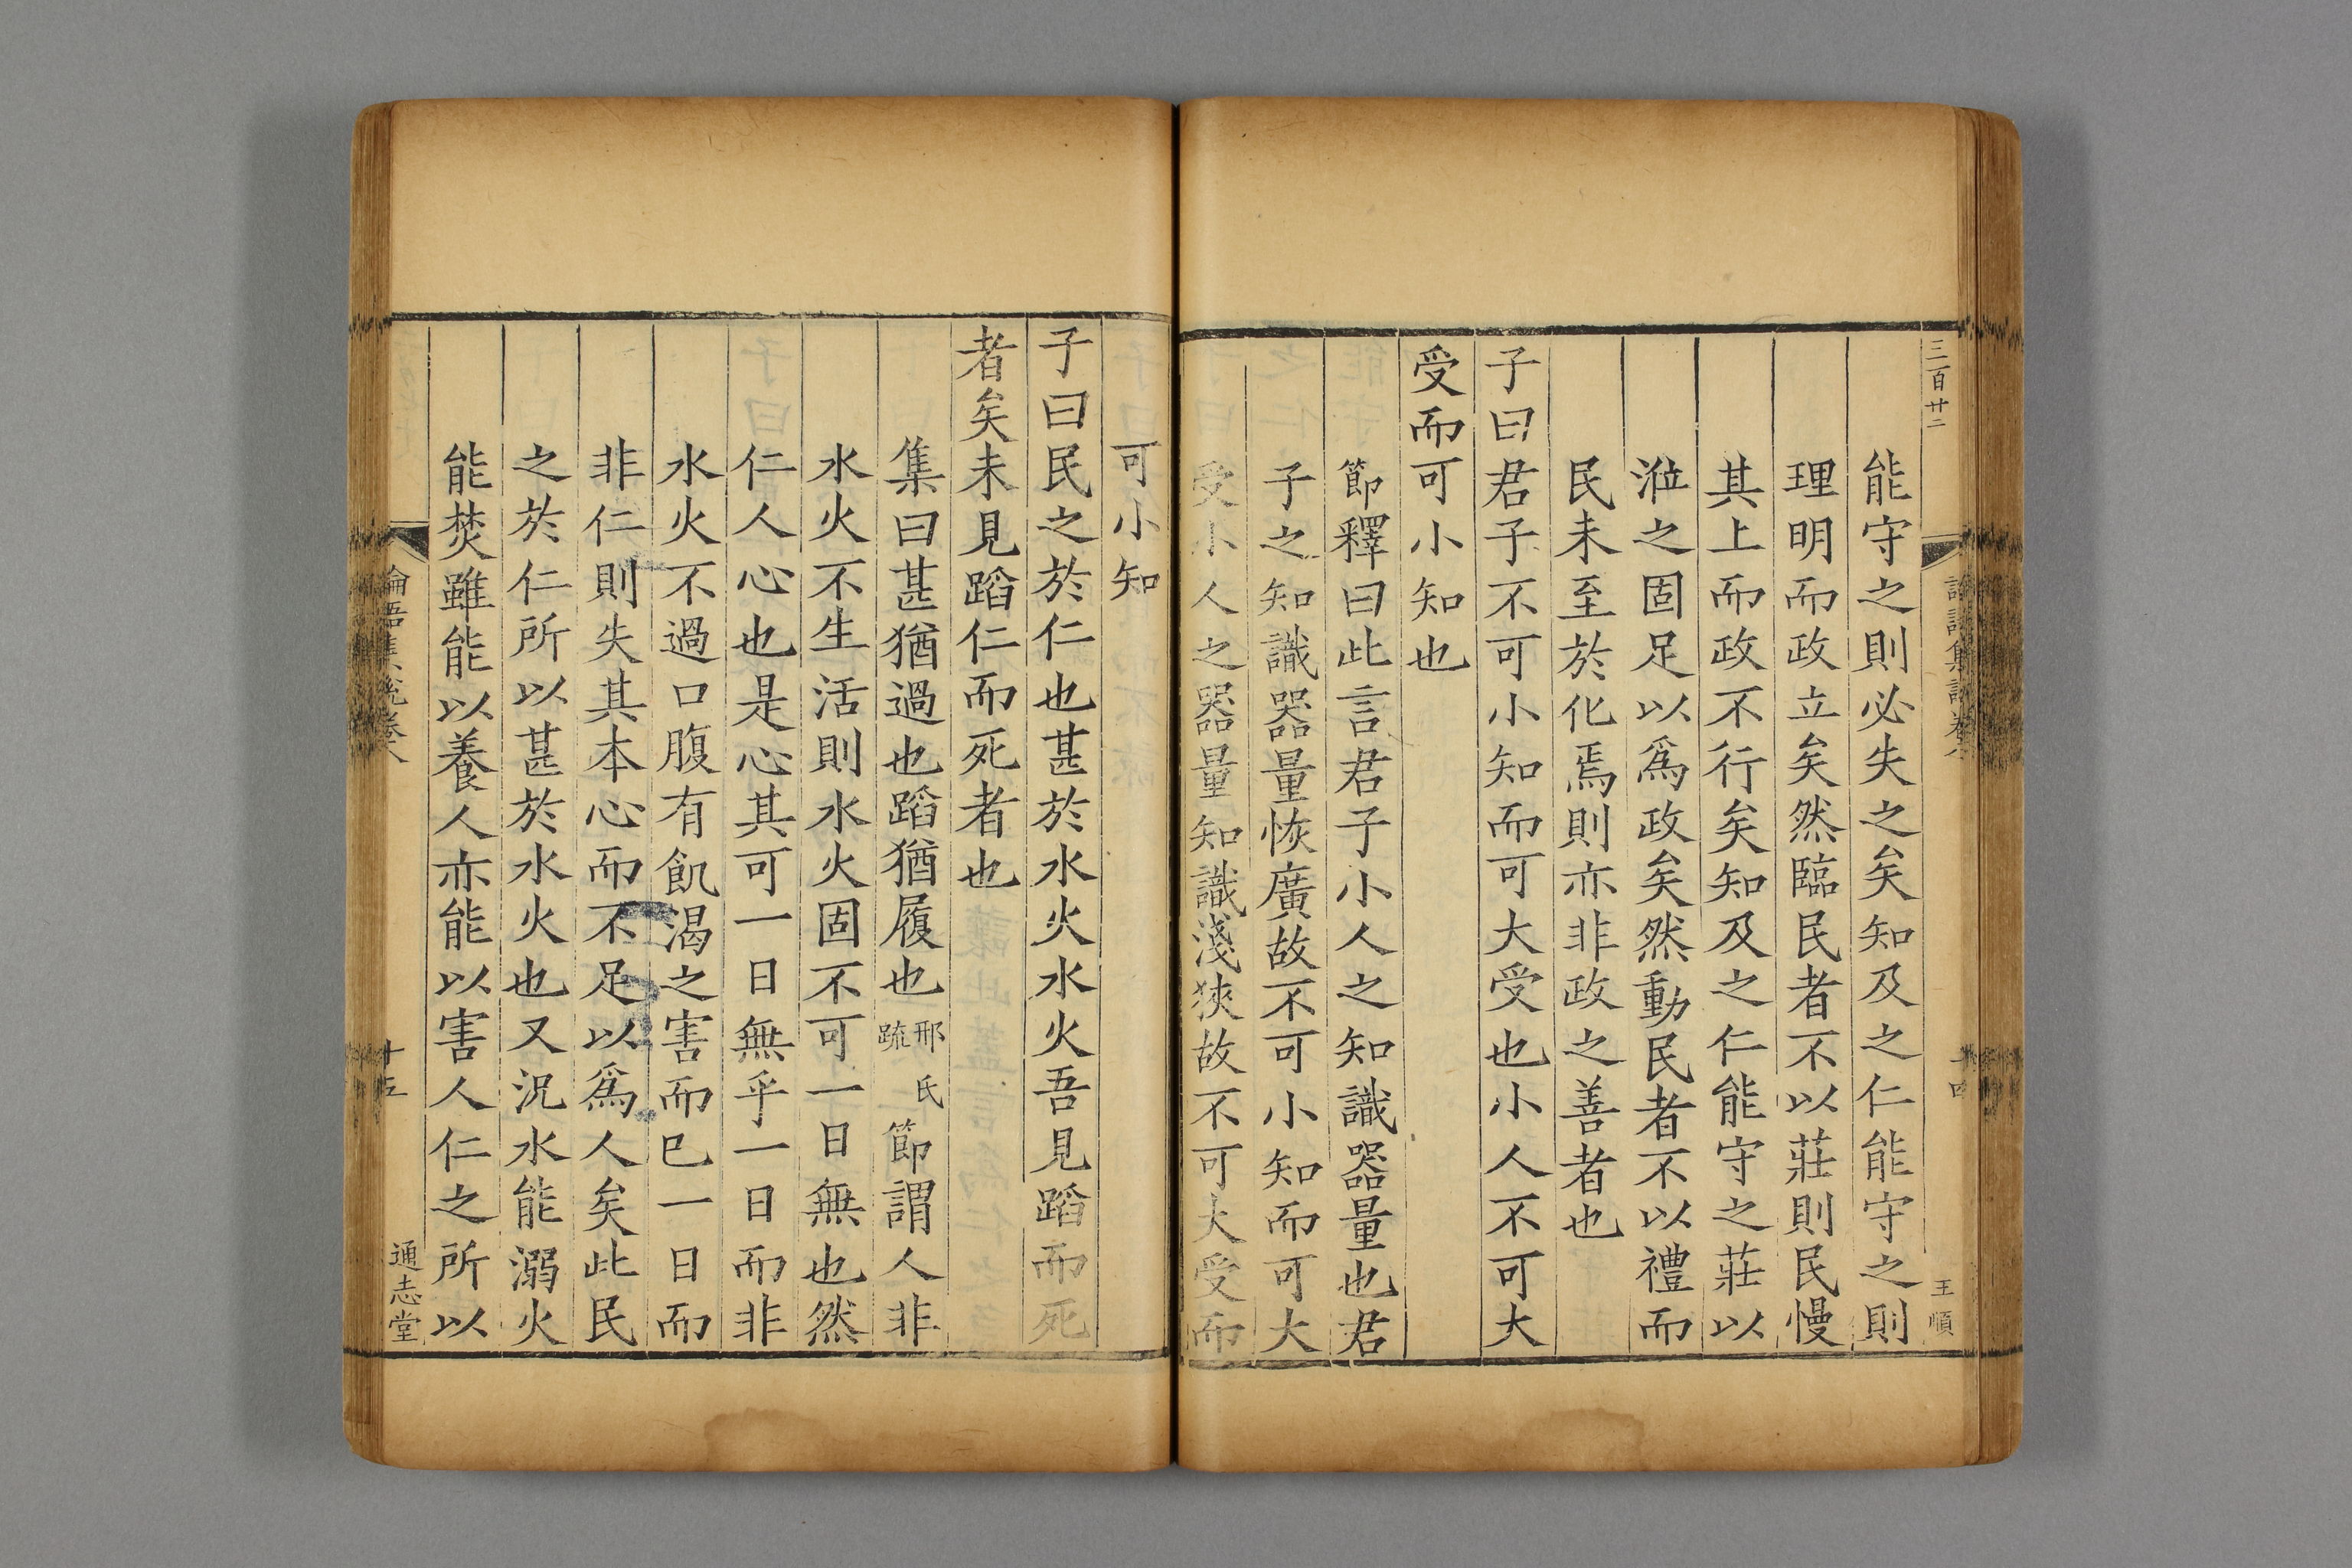 三百廿二
論語集說卷八
十四
王順
能守之則必失之矣知及之仁能守之則
理明而政立矣然臨民者不以莊則民慢
其上而政不行矣知及之仁能守之莊以
涖之固足以爲政矣然動民者不以禮而
民未至於化焉則亦非政之善者也
子曰君子不可小知而可大受也小人不可大
受而可小知也
節釋曰此言君子小人之知識器量也君
子之知識器量恢廣故不可小知而可大
受小人之器量知識淺狹故不可大受而
可小知
子曰民之於仁也甚於水火水火吾見蹈而死
者矣未見蹈仁而死者也
集曰甚猶過也蹈猶履也邢氏疏節謂人非
水火不生活則水火固不可一日無也然
仁人心也是心其可一日無乎一日而非
水火不過口腹有飢渴之害而已一日而
非仁則失其本心而不足以爲人矣此民
之於仁所以甚於水火也又況水能溺火
能焚雖能以養人亦能以害人仁之所以
論語集說卷八
十五
通志堂